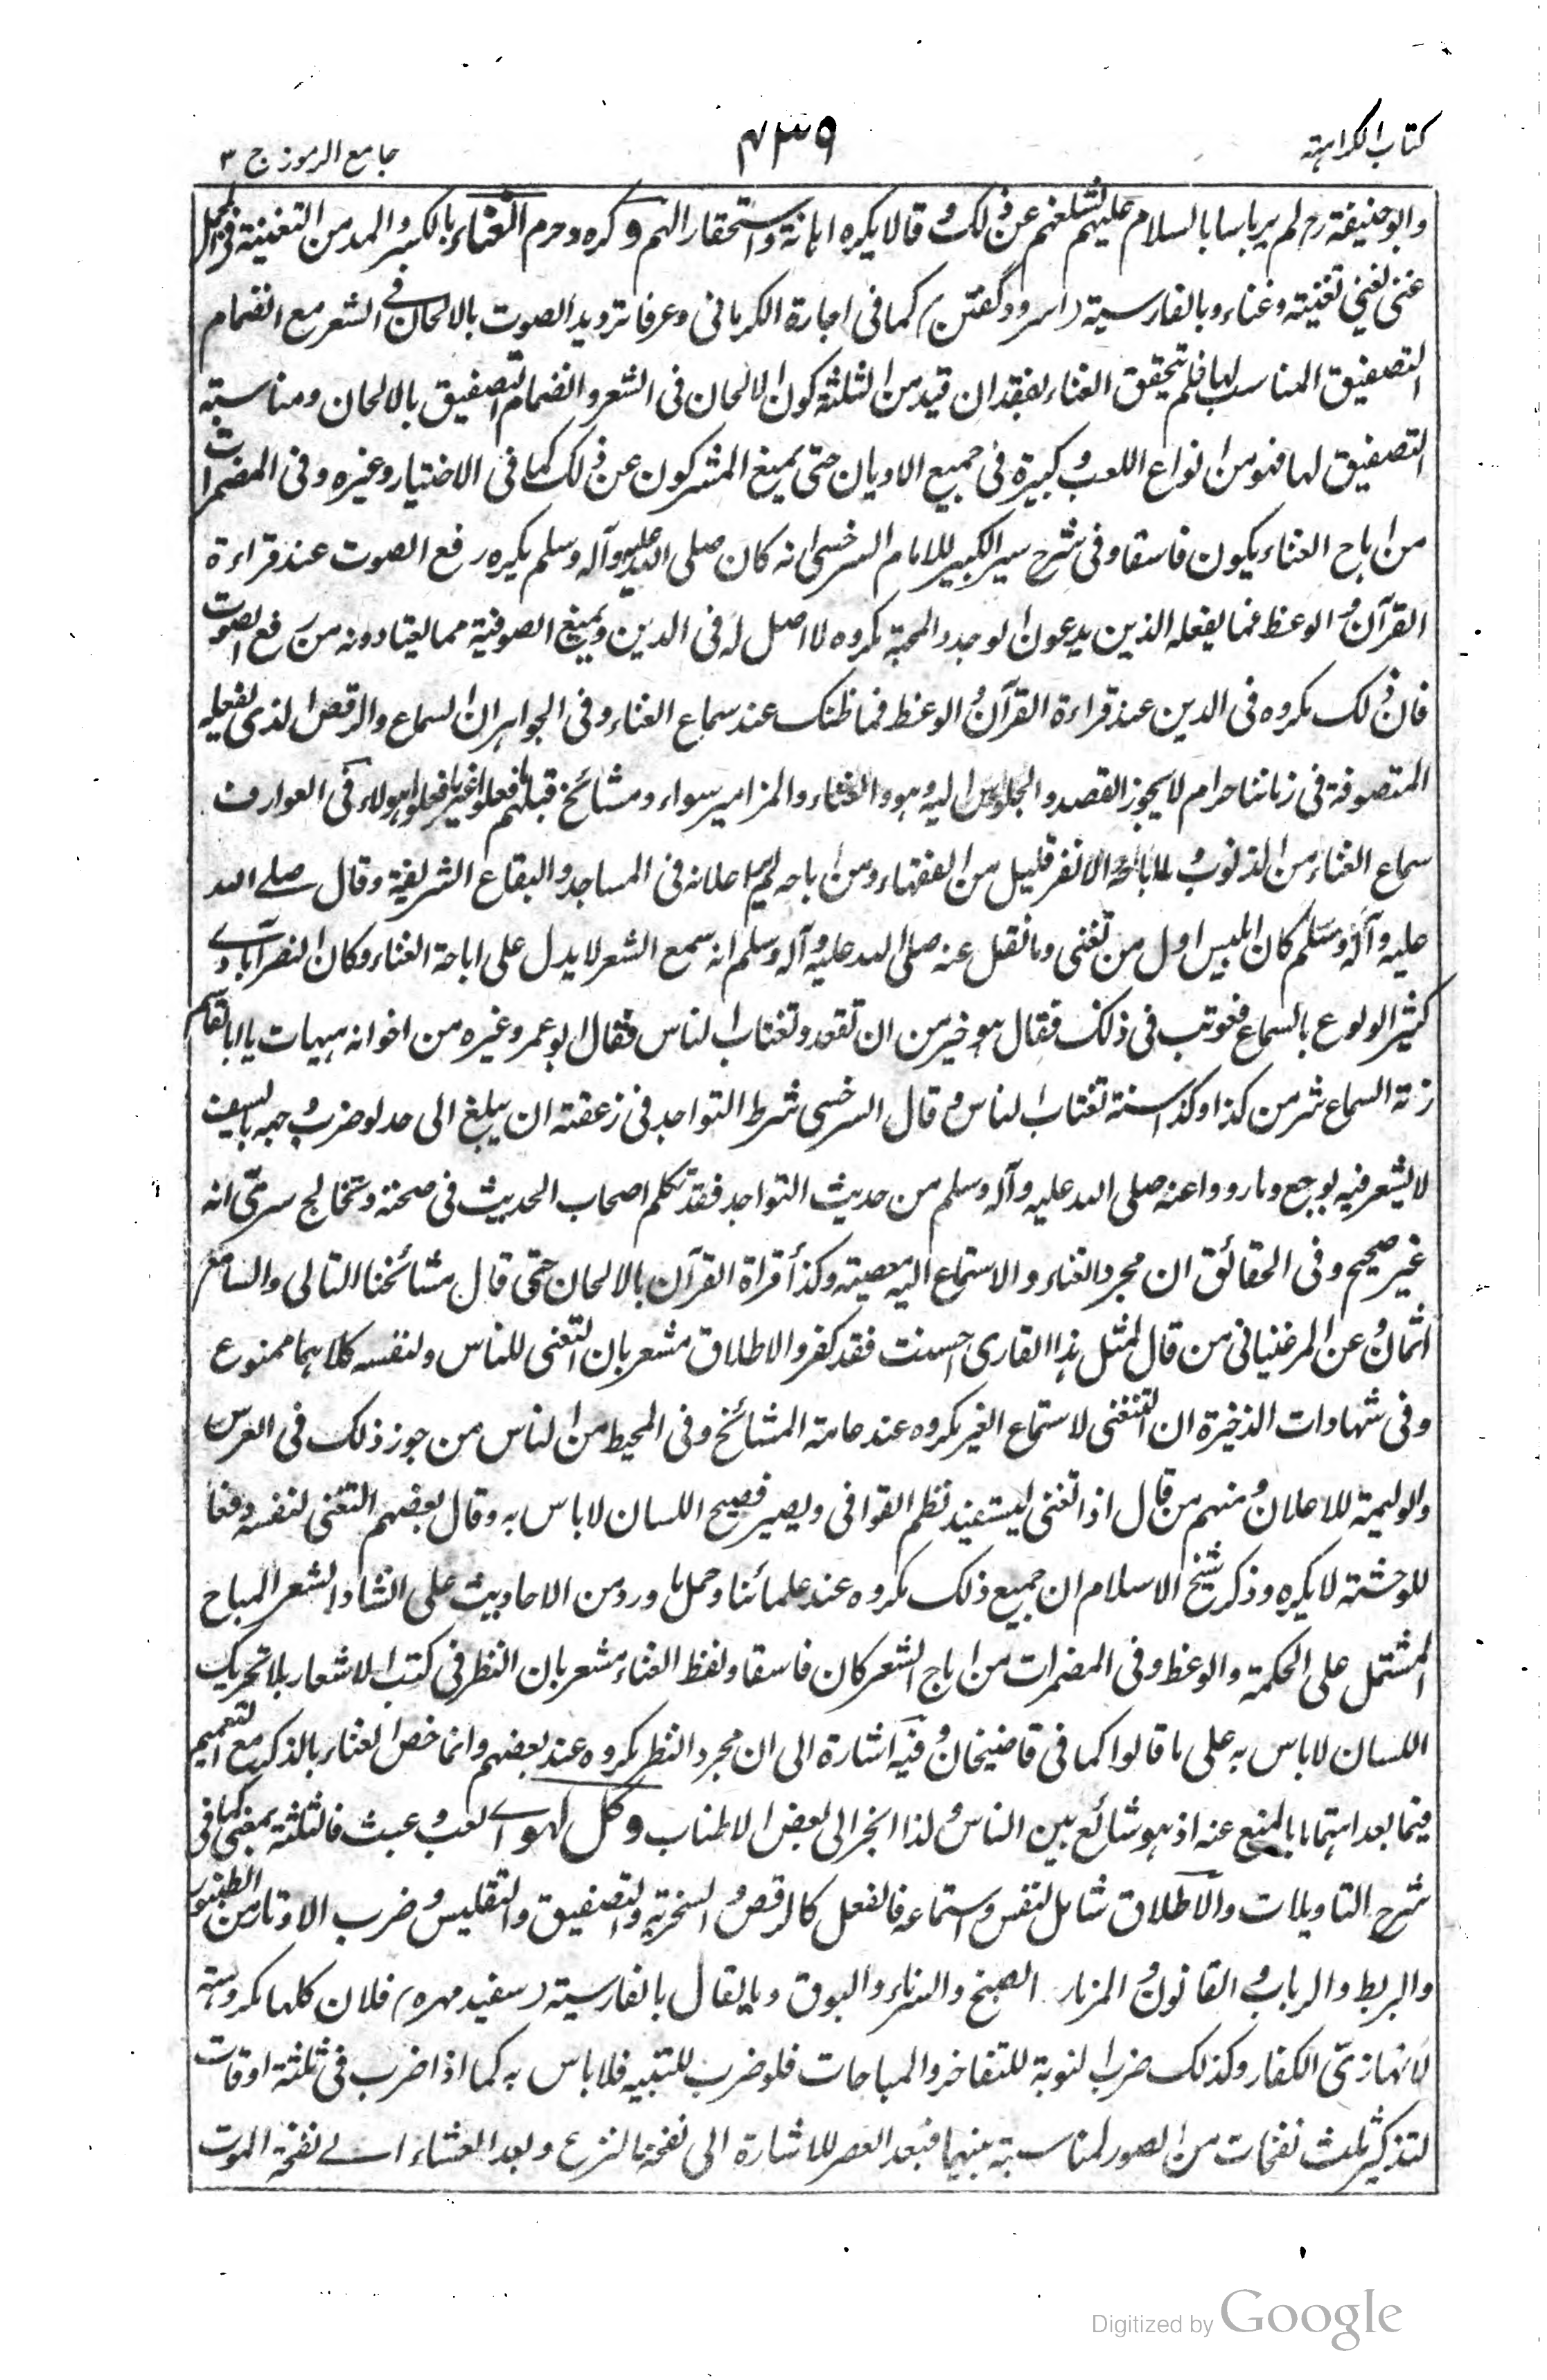 كتاب الكراهية
٤٣٩
جامع الرموز ج ٣
وابو حنيفة رح لم ير باسا بالسلام عليهم لشغلهم عن ذلك و قالا يكره اهانة واستحقارا لهم و كره وحرم الغناء بالكسر والمد من التغنية فى
غنى يغنى تغنية وغناء وبالفارسية (سرود گفتن) كما فى اجارة الكرمانى وعرفا ترديد الصوت بالالحان فى الشعر مع انضمام
التصفيق المناسب لها فلم تحقق الغناء بفقدان قيد من الثلثة كون الالحان فى الشعر وانضمام التصفيق بالالحان ومناسبة
التصفيق لها فهو من انواع اللعب و كبيرة فى جميع الاديان حتى يمنع المشركون عن ذلك كما فى الاختيار وغيره وفى المضمرات
من اباح الغناء يكون فاسقا وفى شرح سير الكبير للامام السرخسى انه كان صلى الله عليه وآله وسلم يكره رفع الصوت عند قراءة
القرآن و الوعظ فما يفعله الذين يدعون الوجد والمحبة مكروه لا اصل له فى الدين ويمنع الصوفية مما يعتادونه من رفع الصوت
فان ذلك مكروه فى الدين عند قراءة القرآن و الوعظ فما ظنك عند سماع الغناء وفى الجواهر ان السماع والرقص الذى يفعله
المتصوفة فى زماننا حرام لا يجوز القصد والجلوس اليه وهو والغناء والمزامير سواء ومشائخ قبلهم فعلوا غير ما فعلوا هولاء فى العوارف
سماع الغناء من الذنوب و ما اباحه الا نفر قليل من الفقهاء ومن اباحه لم ير اعلانه فى المساجد والبقاع الشريفة وقال صلى الله
عليه وآله وسلم كان ابليس اول من تغنى وما نقل عنه صلى الله عليه وآله وسلم انه سمع الشعر لا يدل على اباحة الغناء وكان النصرآبادى
كثير الولوع بالسماع فعوتب فى ذلك فقال هو خير من ان تقعد وتغتاب الناس فقال ابو عمر وغيره من اخوانه هيهات يا ابا القاسم
زلة السماع شر من كذا وكذا سنة تغتاب الناس و قال السرخسى شرط التواجد فى زعقته ان يبلغ الى حد لو ضرب وجهه بالسيف
لا يشعر فيه بوجع وما رووا عنه صلى الله عليه وآله وسلم من حديث التواجد فقد تكلم اصحاب الحديث فى صحته وتخالج سرى انه
غير صحيح وفى الحقائق ان مجرد الغناء والاستماع اليه معصية وكذا قراة القرآن بالالحان حتى قال مشائخنا التالى والسامع
آثمان و عن المرغينانى من قال لمثل هذا القارى احسنت فقد كفر والاطلاق مشعر بان التغنى للناس ولنفسه كلاهما ممنوع
وفى شهادات الذخيرة ان التغنى لاستماع الغير مكروه عند عامة المشائخ وفى المحيط من الناس من جوز ذلك فى العرس
والوليمة للاعلان و منهم من قال اذا تغنى ليستفيد نظم القوافى ويصير فصيح اللسان لا باس به وقال بعضهم التغنى لنفسه دفعا
للوحشة لا يكره وذكر شيخ الاسلام ان جميع ذلك مكروه عند علمائنا وحمل ما ورد من الاحاديث على انشاد الشعر المباح
المشتمل على الحكمة والوعظ وفى المضمرات من اباح الشعر كان فاسقا ولفظ الغناء مشعر بان النظر فى كتب الاشعار بلا تحريك
اللسان لا باس به على ما قالوا كما فى قاضيخان و فيه اشارة الى ان مجرد النظر مكروه عند بعضهم وانما خص الغناء بالذكر مع التعميم
فيما بعد اهتماما بالمنع عنه اذ هو شائع بين الناس و لذا انجر الى بعض الاطناب و كل لهو اے لعب و عبث فالثلثة بمعنى كما فى
شرح التاويلات والاطلاق شامل لنفس واستماعه فالفعل كالرقص و السخرية والتصفيق والتقليس و ضرب الاوتار من الطنبور
والبربط والرباب و القانون و المزمار الصنج والسرناء والبوق وما يقال بالفارسية (سفيد مهره) فلان كلها مكروهته
لانها زى الكفار وكذلك ضرب النوبة للتفاخر والمباحات فلو ضرب للتنبيه فلا باس به كما اذا ضرب فى ثلثة اوقات
لتذكير ثلث نفخات من الصور لمناسبة بينهما فبعد العصر للاشارة الى نفخة الفزع وبعد العشاء الے نفخة الموت
Digitized by Google